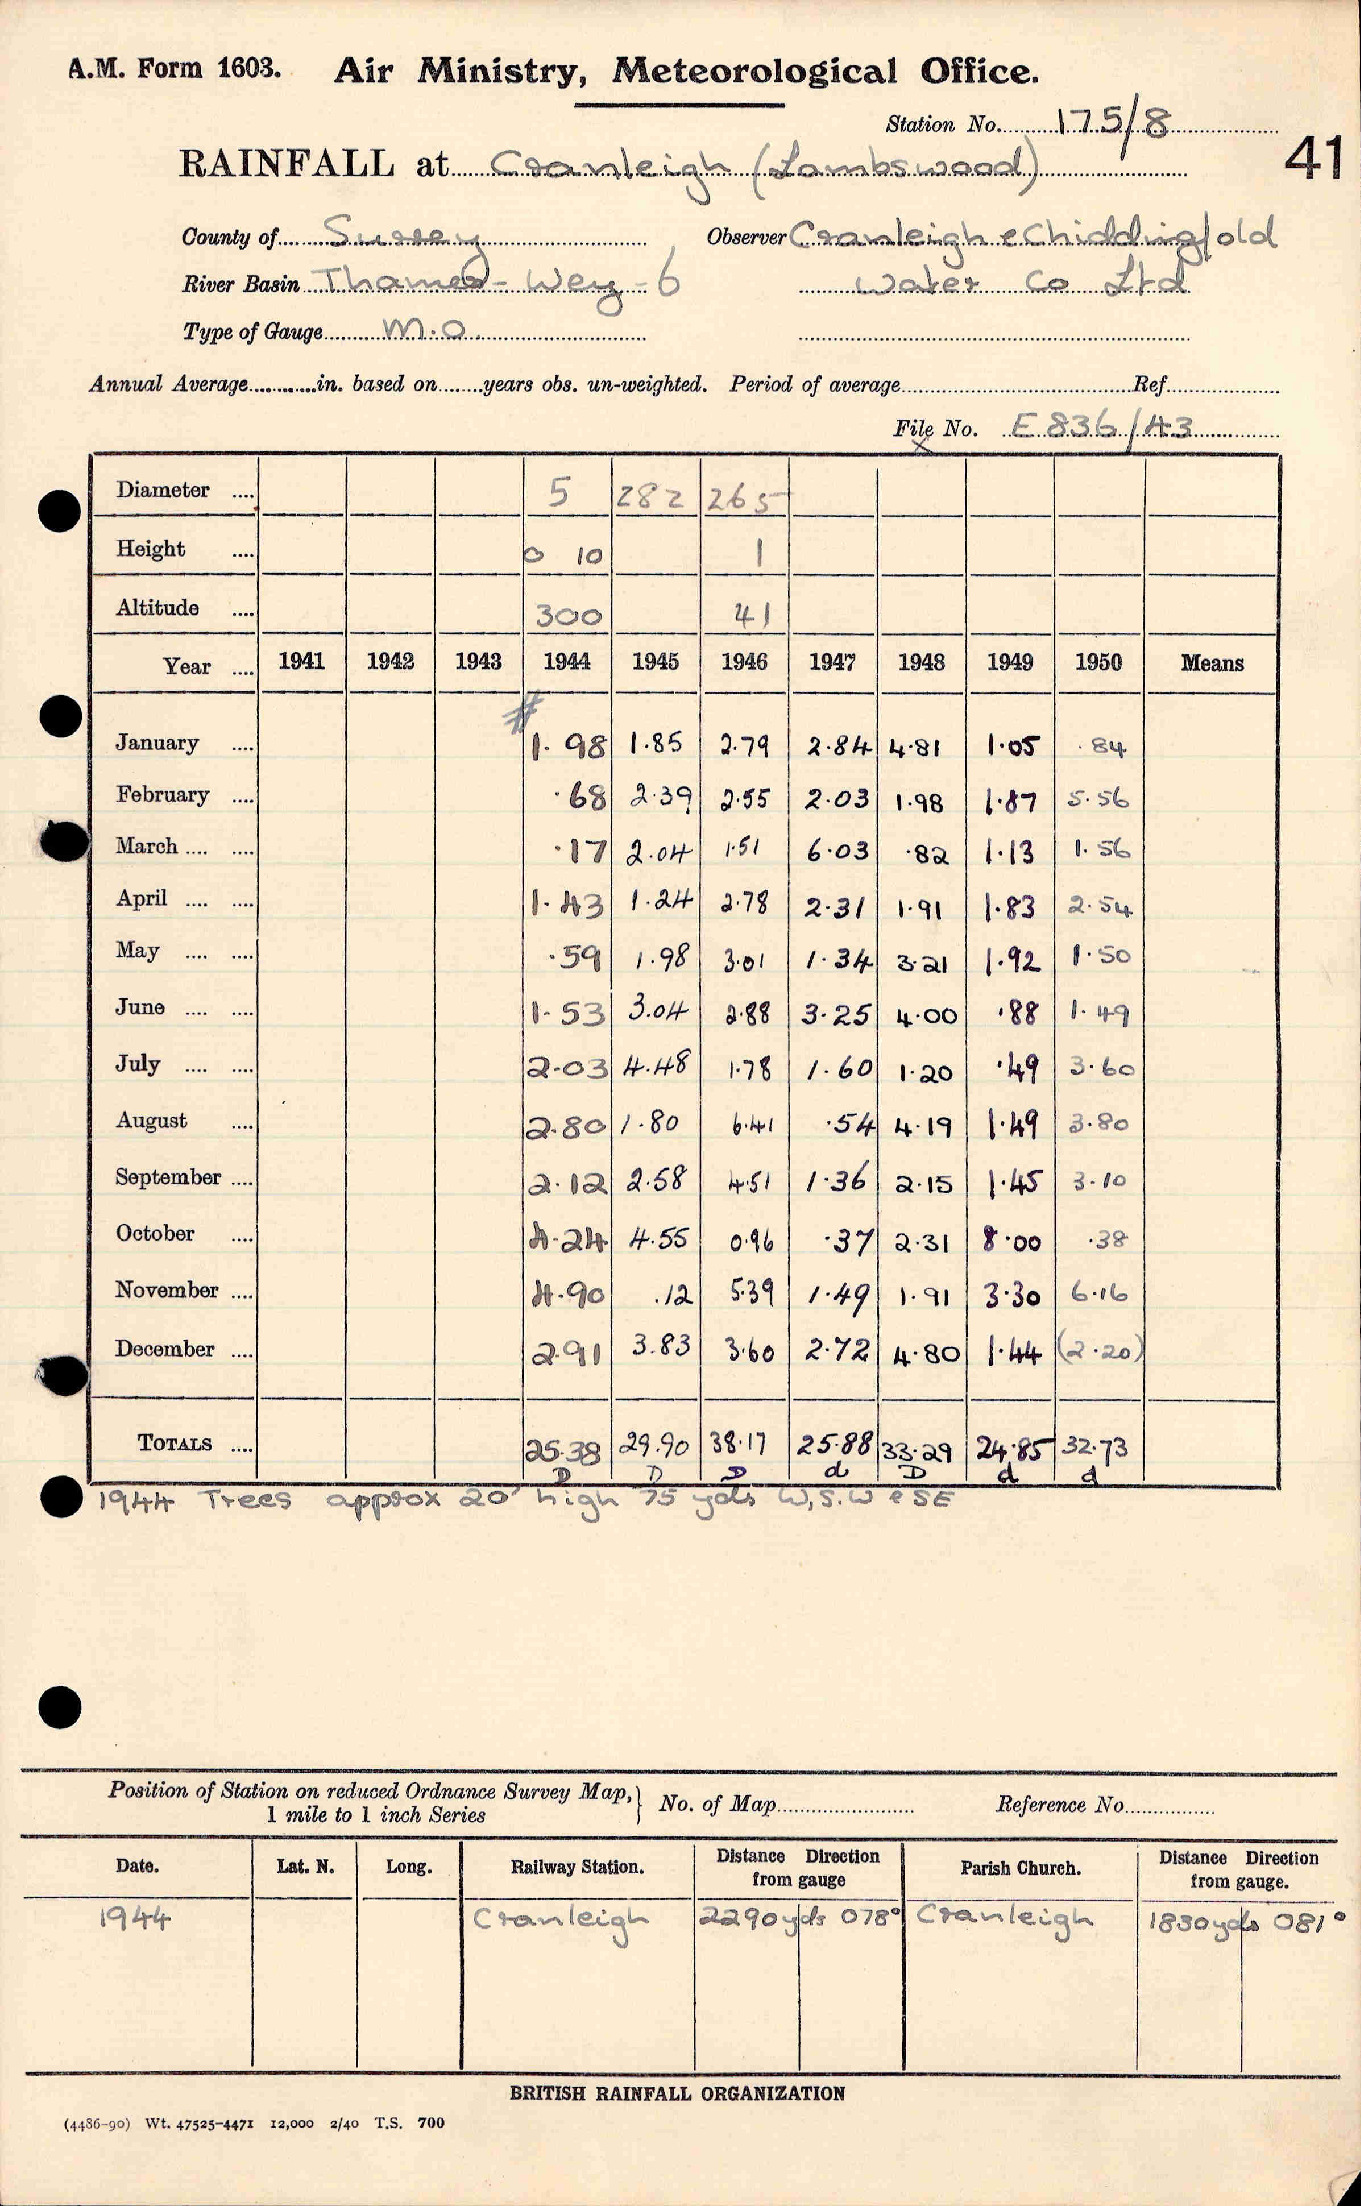 A.M. Form 1603. Air Ministry, Meteorological Office.
Station No. 175/8
41
RAINFALL at Cranleigh (Lambswood)
County of Surrey Observer Cranleigh & Chiddingfold
River Basin Thames - Wey - 6 Water Co Ltd
Type of Gauge M.O
Annual Average............in. based on.......years obs. un-weighted. Period of average Ref.
File No. E836/43
x
Diameter .... 5 282 265
Height .... 0 10 1
Altitude .... 300 41
Year .... 1941 1942 1943 1944 1945 1946 1947 1948 1949 1950 Means
#
January .... 1.98 1.85 2.79 2.84 4.81 1.05 .84
February .... .68 2.39 2.55 2.03 1.98 1.87 5.56
March .... .... .17 2.04 1.51 6.03 .82 1.13 1.56
April .... .... 1.43 1.24 2.78 2.31 1.91 1.83 2.54
May .... .... .59 1.98 3.01 1.34 3.21 1.92 1.50
June .... .... 1.53 3.04 2.88 3.25 4.00 .88 1.49
July .... .... 2.03 4.48 1.78 1.60 1.20 .49 3.60
August .... 2.80 1.80 6.41 .54 4.19 1.49 3.80
September .... 2.12 2.58 4.51 1.36 2.15 1.45 3.10
October .... 4.24 4.55 0.96 .37 2.31 8.00 .38
November .... 4.90 .12 5.39 1.49 1.91 3.30 6.16
December .... 2.91 3.83 3.60 2.72 4.80 1.44 (2.20)
TOTALS .... 25.38 29.90 38.17 25.88 33.29 24.85 32.73
D D D d D d d
1944 Trees approx 20' high 75 yds W, S.W & SE
Position of Station on reduced Ordnance Survey Map, } No. of Map Reference No.
1 mile to 1 inch Series
Date. Lat. N. Long. Railway Station. Distance Direction from gauge Parish Church. Distance Direction from gauge.
1944 Cranleigh 2290yds 078° Cranleigh 1830yds 081°
BRITISH RAINFALL ORGANIZATION
(4486-90) Wt. 47525-4471 12,000 2/40 T.S. 700